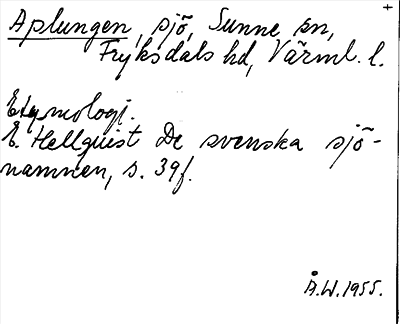 +
Aplungen, sjö, Sunne sn,
Fryksdals hd, Värml. l.
Etymologi.
E. Hellquist De svenska sjö-
namnen, s. 39f.
Å.W. 1955.